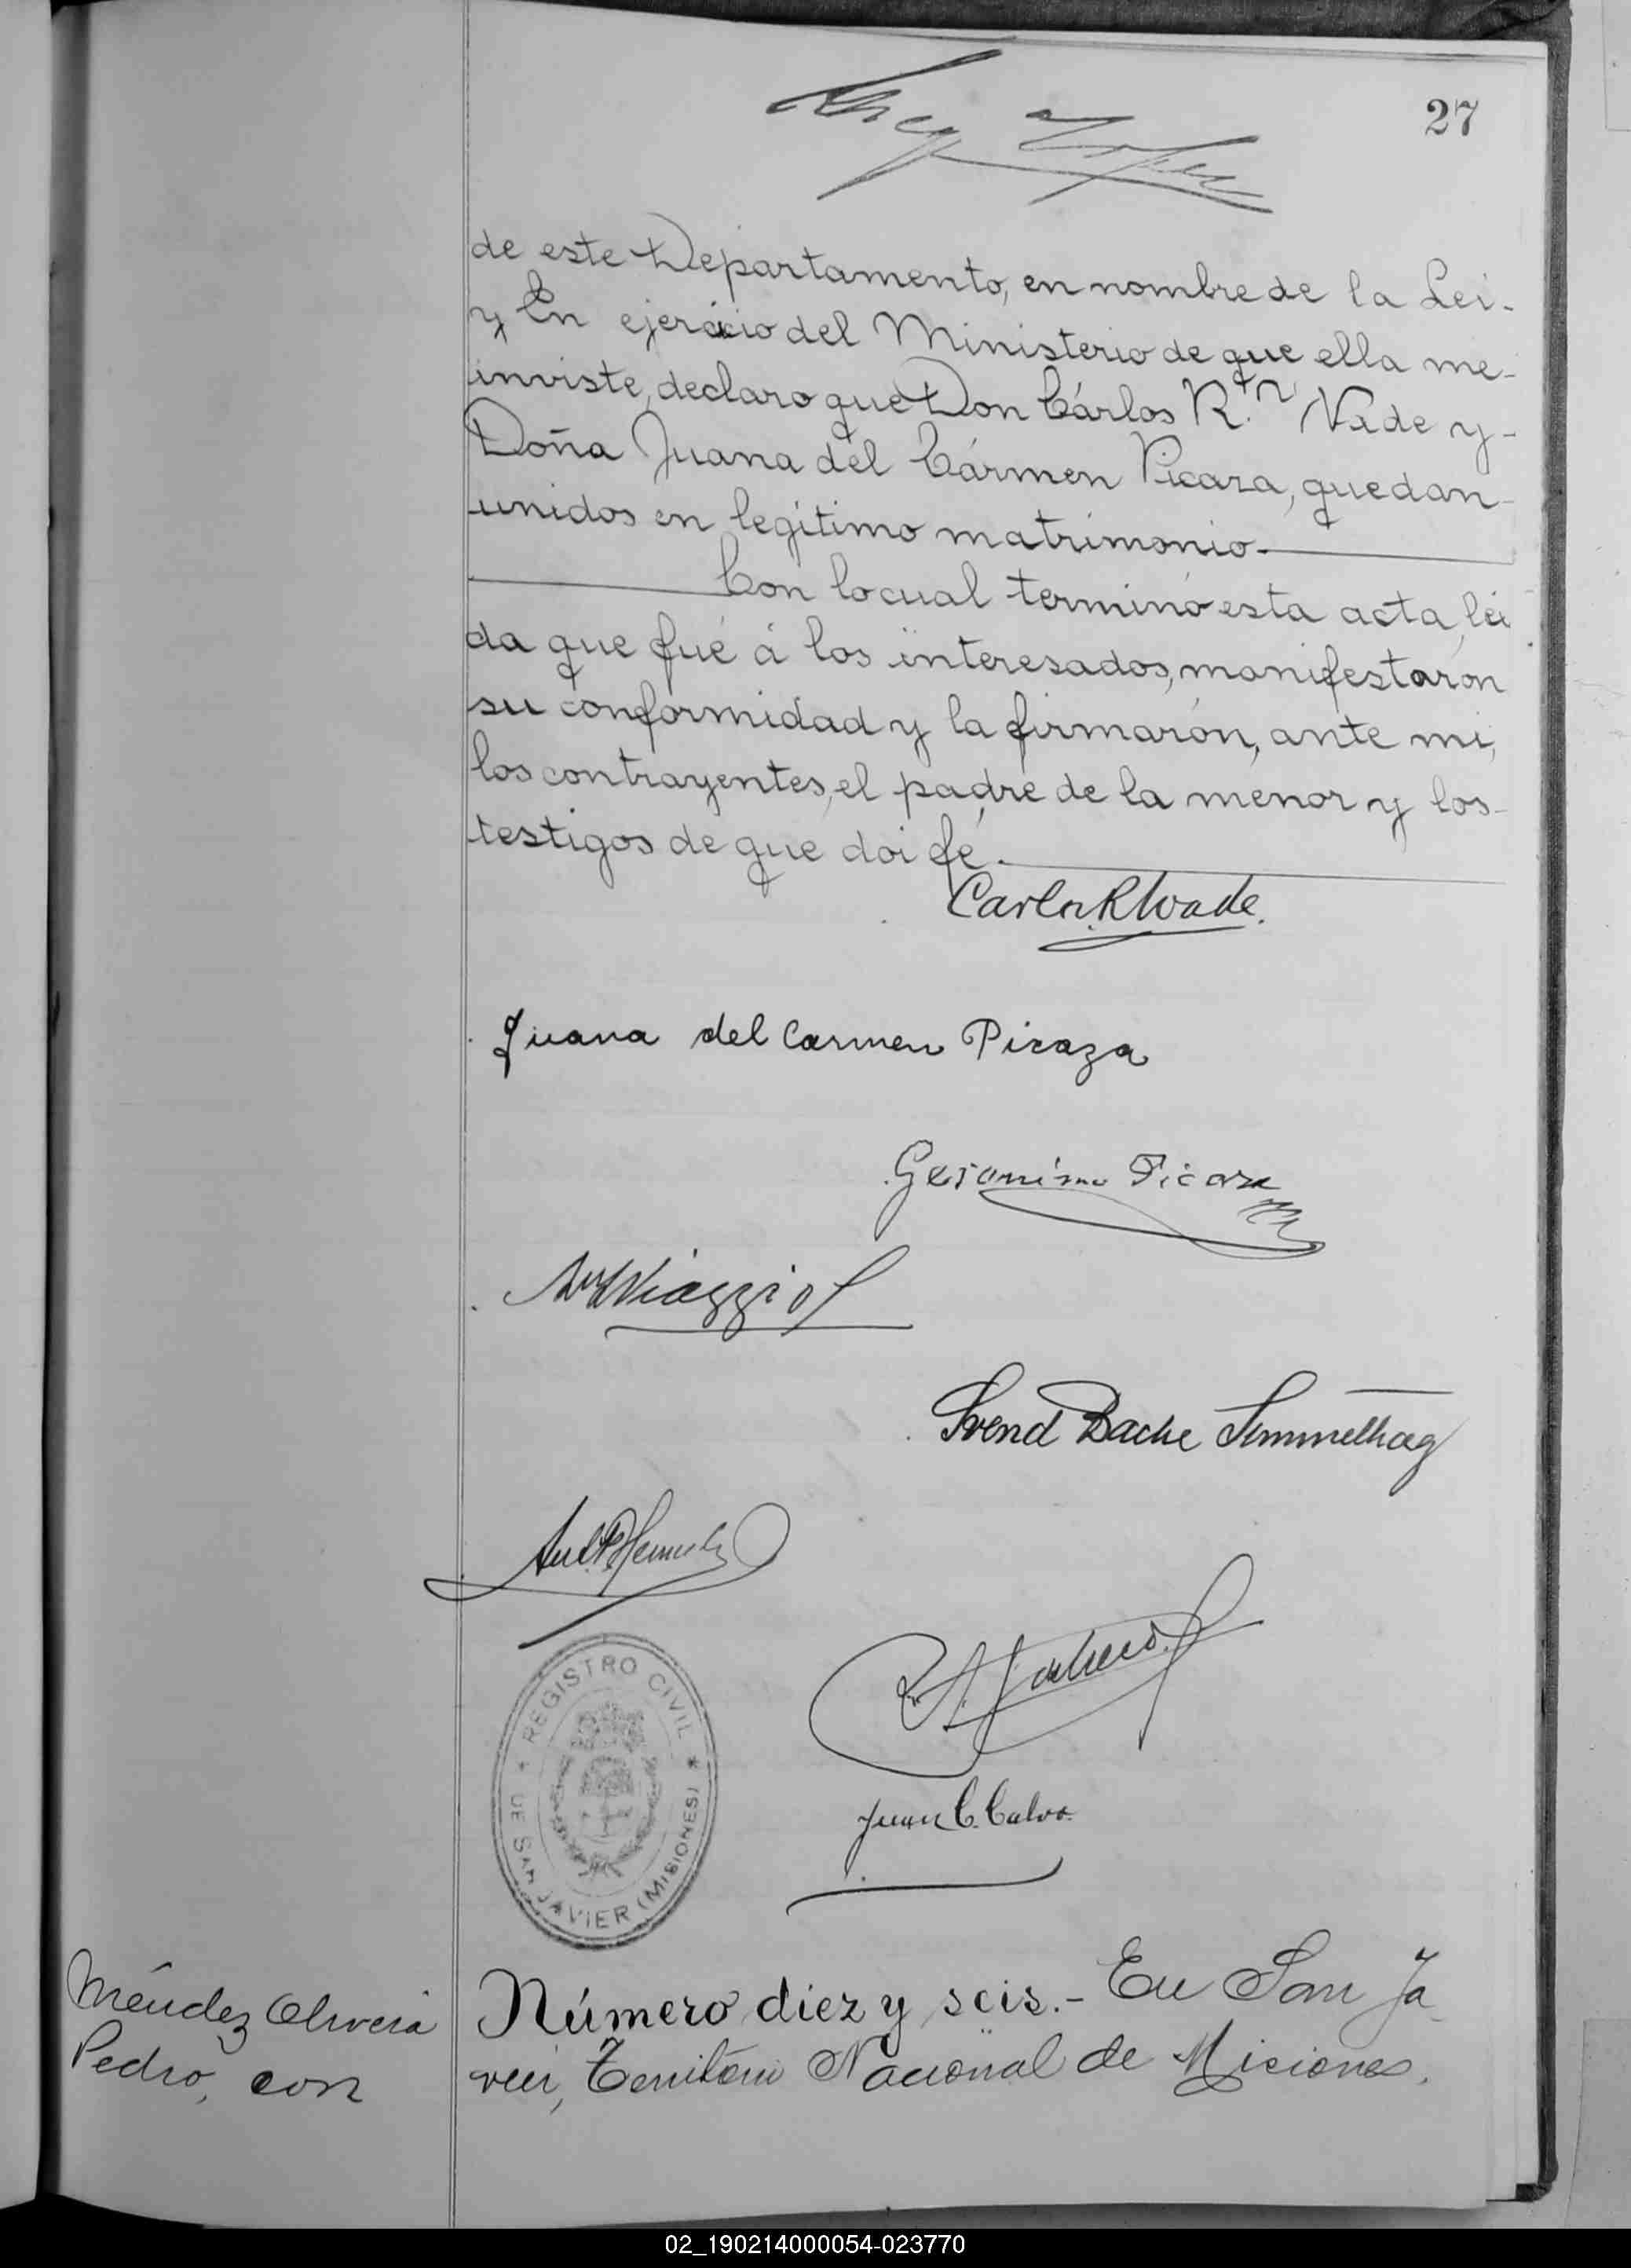 27
de este Departamento, en nombre de la Lei-
y En ejercicio del Ministerio de que ella me-
inviste, declaro que Don Cárlos R.ⁿ Wade y-
Doña Juana del Cármen Picaza, quedan-
unidos en legítimo matrimonio.
Con lo cual terminó esta acta, lei
da que fué á los interesados, manifestarón
su conformidad y la firmarón, ante mi,
los contrayentes, el padre de la menor y los-
testigos de que doi fé.
Carlos R Wade.
Juana del Carmen Picaza
Geronimo Picaza
Viaggio
Svend Bache Simmelhag
Juan C. Calvo.
REGISTRO CIVIL
DE SAN JAVIER (MISIONES)
Méndez Olivera
Pedro, con
Número diez y seis.- En San Ja
vier, Territorio Nacional de Misiones,
02_190214000054-023770